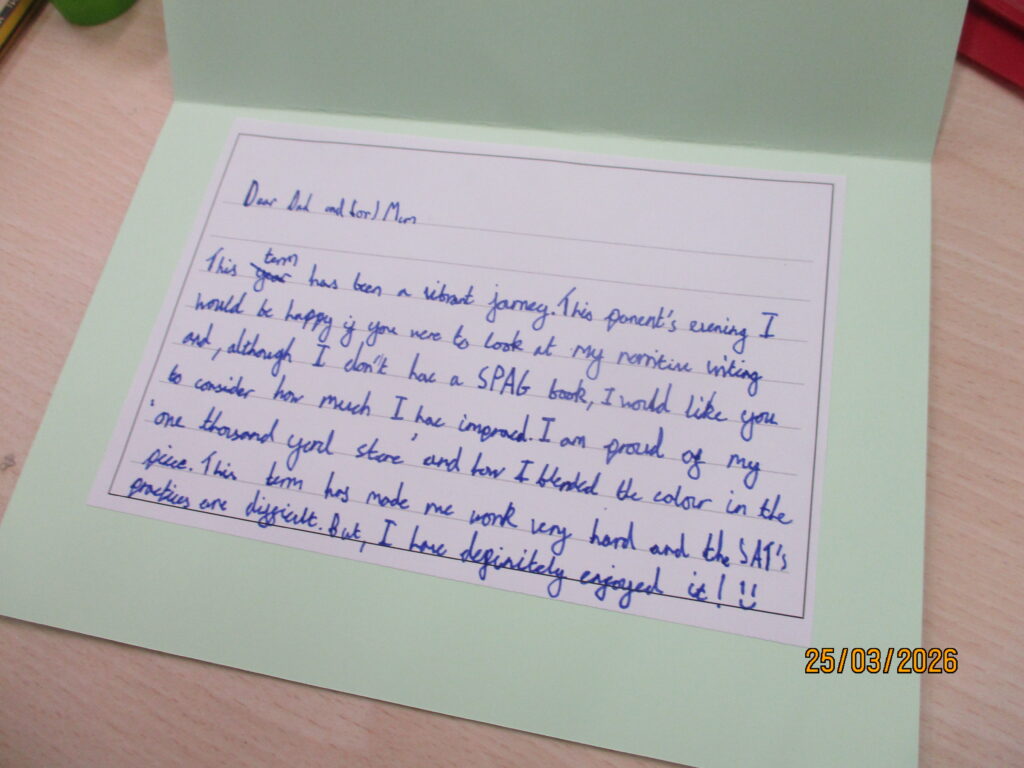 Dear Dad and (or) Mum
term
This year has been a vibrant jarney. This parent's evening I
would be happy if you were to look at my narritive writing
and, although I don't hac a SPAG book, I would like you
to consider how much I hac impraed. I am proud of my
'one thousand yard stare' and how I blended the colour in the
piece. This term has made me work very hard and the SAT's
practices are difficult. But, I have definitely enjoyed it! :)
25/03/2026